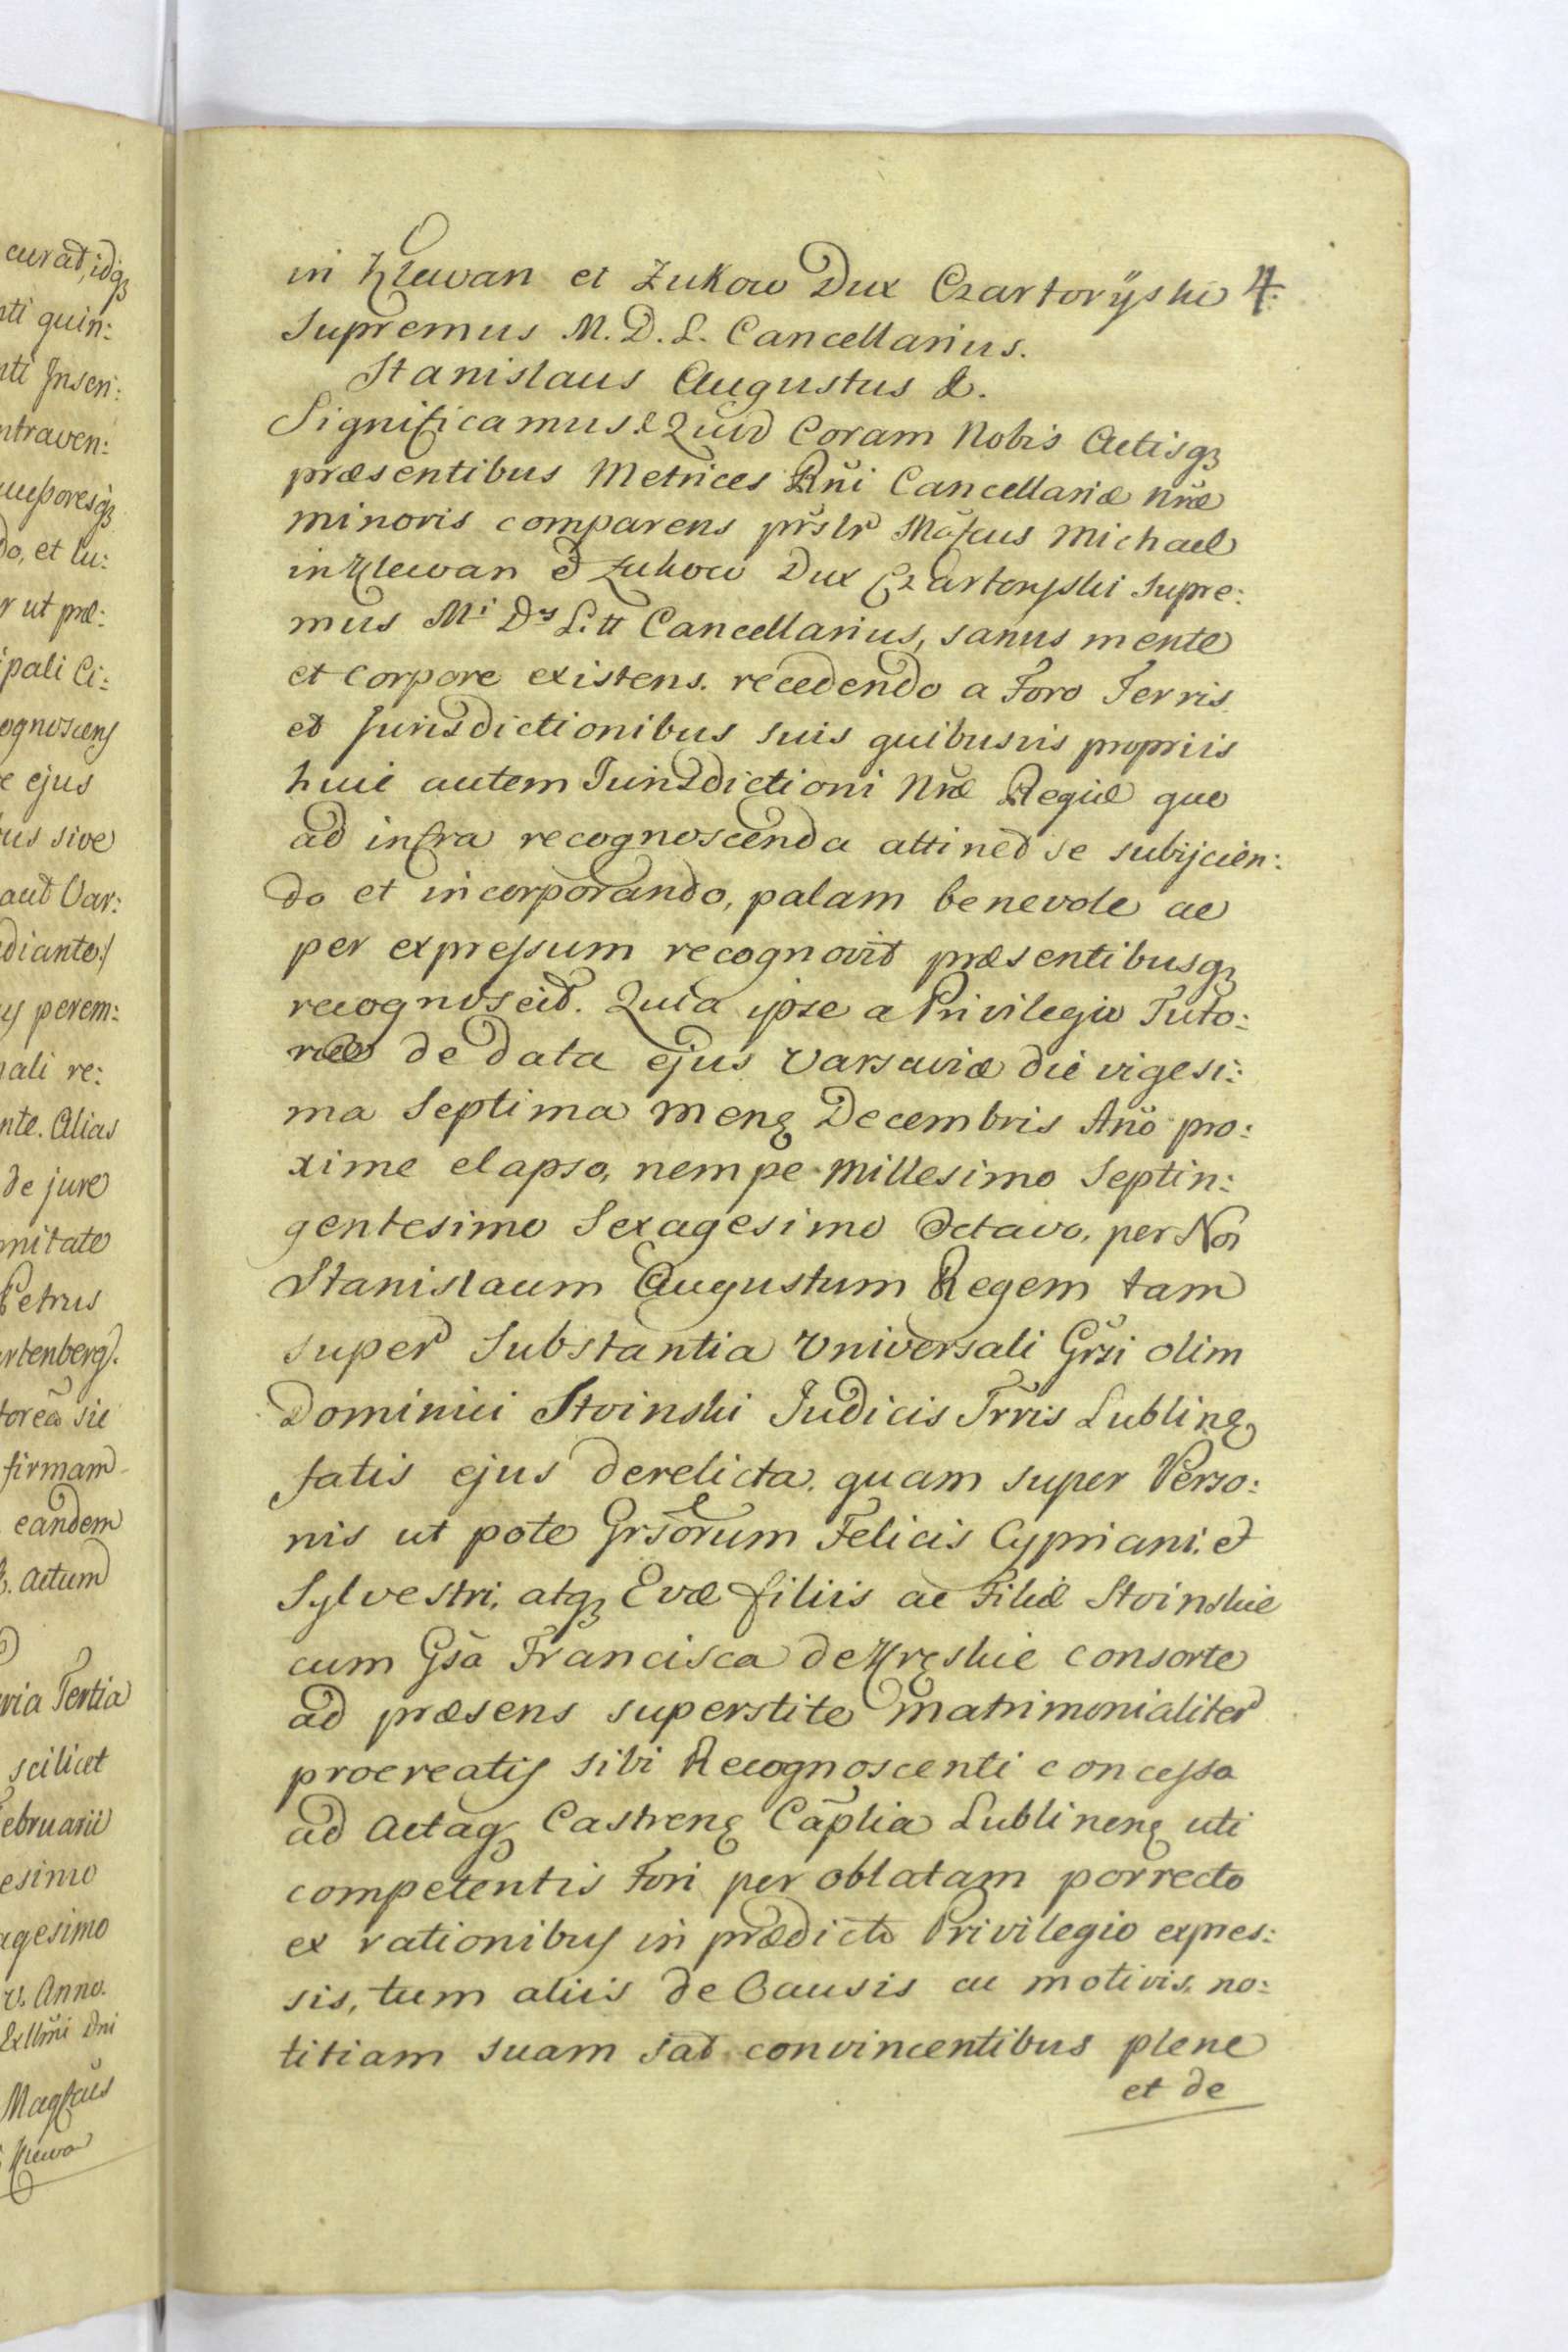 curat, idqȝ
nti quin:
nti Inscri:
ntraven:
do, et lu:
r ut præ:
ipali Ci:
ognoscens
e ejus
us sive
aut Var:
diante/
perem:
nali re:
nte. Alias
de jure
nitate
Petrus
rtenberg.
toreã sic
firmam
eandem
Actum
ria Tertia
scilicet
ebruarii
esimo
agesimo
v. Anno.
Exllm̃i Dni
Magf̃cus
Klewa
in Klewan et Zukow Dux Czartorÿski 4.
Supremus M. D. L. Cancellarius.
Stanislaus Augustus &.
Significamus & Quid Coram Nobis Actisqȝ
præsentibus Metrices Rñi Cancellariæ Nr̃æ
minoris comparens pr̃slr Mg̃fcus Michael
in Klewan et Zukow Dux Czartoryski Supre:
mus Mi Ds Litt Cancellarius, sanus mente
et corpore existens. recedendo a Foro Terris
et Jurisdictionibus suis quibusvis propriis
huic autem Jurisdictioni Nr̃æ Regiæ quo
ad infra recognoscenda attinet se subijcien:
do et incorporando, palam benevole ac
per expressum recognovit præsentibusqȝ
recognoscit. Quia ipse a Privilegio Tuto:
riæ de data ejus Varsaviæ die vigesi:
ma Septima menȩ Decembris Año pro:
xime elapso, nempe Millesimo Septin:
gentesimo Sexagesimo Octavo, per Nos
Stanislaum Augustum Regem tam
super Substantia Universali Gr̃si olim
Dominici Stoinski Judicis Tr̃ris Lublinȩ
fatis ejus derelicta. quam super Perso:
nis ut pote Grsõrum Felicis Cypriani. et
Sylvestri, atqȝ Evæ filiis ac Filiæ Stoinskie
cum Gsã Francisca de Kręskie consorte
ad præsens superstite matrimonialiter
procreatis sibi Recognoscenti concesso
ad Actaqȝ Castrenȩ Cap̃lia Lublinenȩ uti
competentis Fori per oblatam porrecto
ex rationibus in prædicto Privilegio expres:
sis, tum aliis de Causis ac motivis, no:
titiam suam sat convincentibus plene
et de